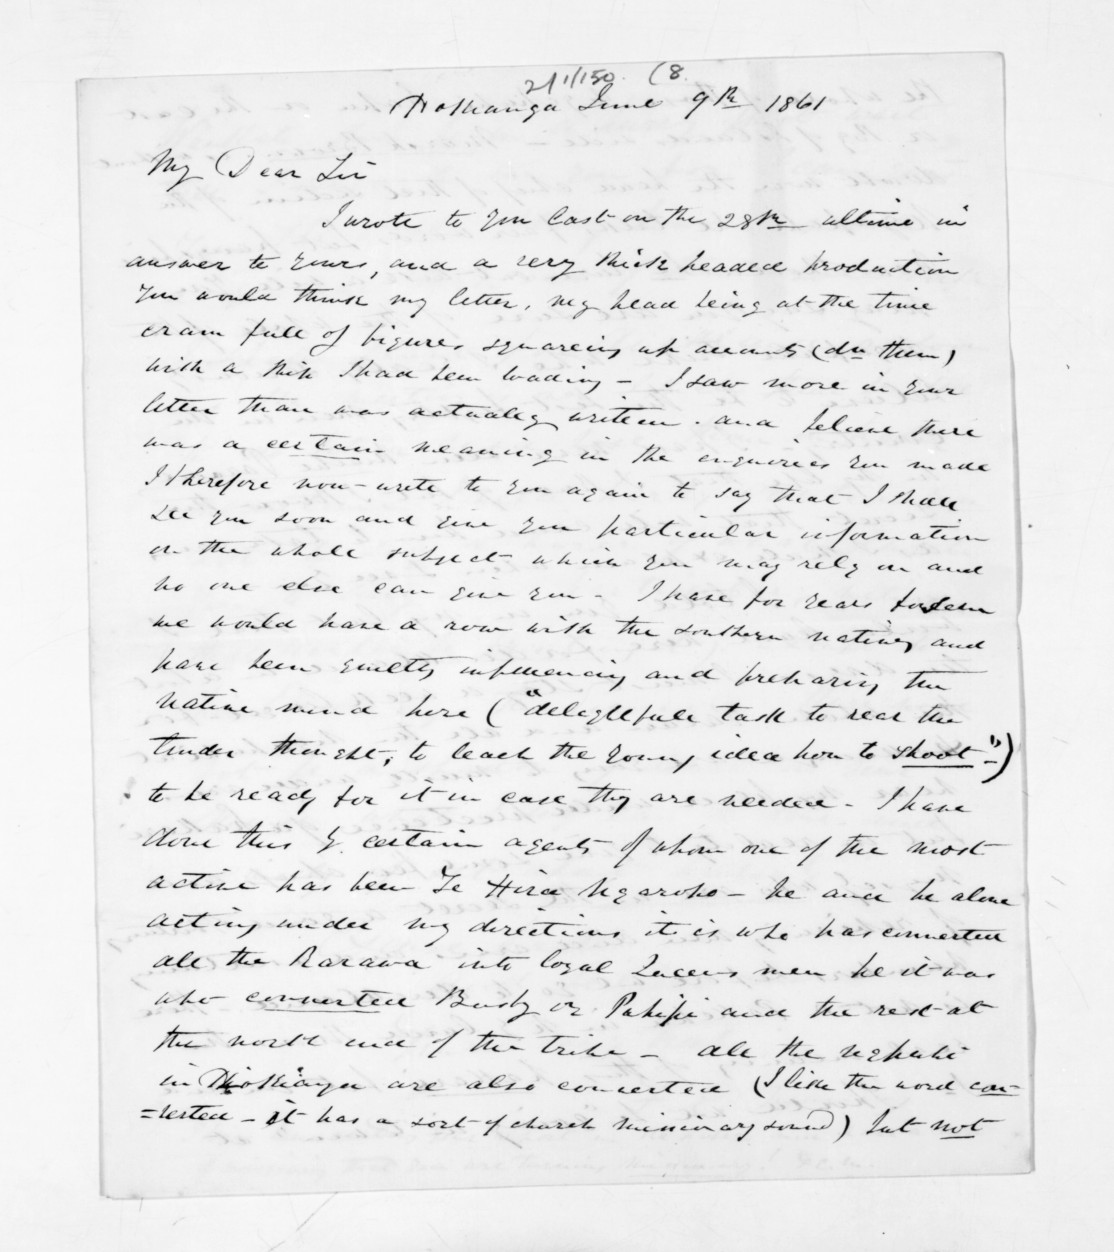 2/1/150. (8.
Hokianga June 9th 1861
My Dear Sir
I wrote to you last on the 28th ultimo in
answer to yours, and a very thick headed production
you would think my letter, my head being at the time
cram full of figures squareing up accounts (dn them)
with a ship I had been loading - I saw more in your
letter than was actually writen. and believe there
was a certain meaning in the enquiries you made
I therefore now write to you again to say that I shall
see you soon and give you particular information
on the whole subject which you may rely on and
no one else can give you - I have for years foreseen
we would have a row with the southern natives and
have been quietly influencing and preparing the
native mind here ("delightfull task to rear the
tender thought, to teach the young idea how to shoot")
to be ready for it in case they are needed - I have
done this by certain agents of whom one of the most
active has been Te Hira Ngaropo - he and he alone
acting under my directions it is who has converted
all the Rarawa into loyal Queens men he it was
who converted Busby or Pakipi and the rest at
the north end of the tribe - all the ngapuhi
in Hokianga are also converted (I like the word con-
=verted - it has a sort of church missionary sound) but not